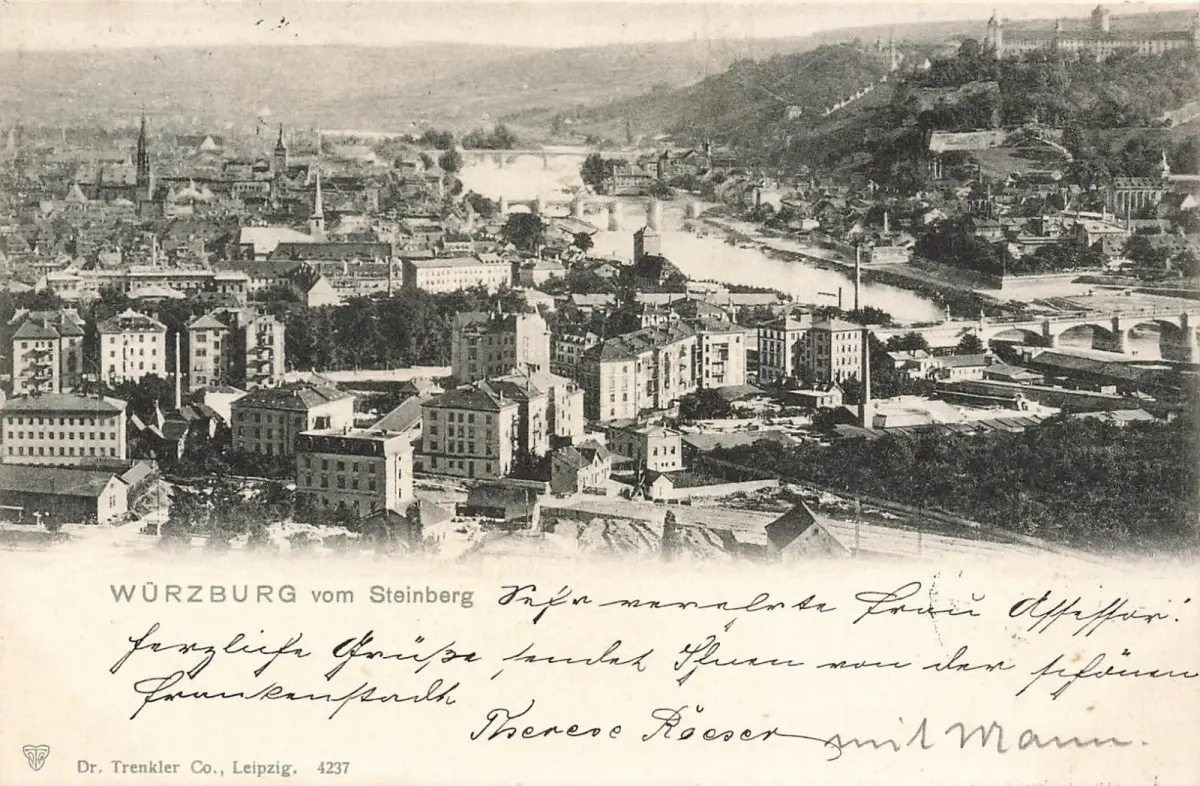 WÜRZBURG vom Steinberg
Sehr verehrte Frau Assessor!
herzliche Grüße sendet Ihnen von der schönen
Frankenstadt
Therese Röeser mit Mann.
Dr. Trenkler Co., Leipzig. 4237